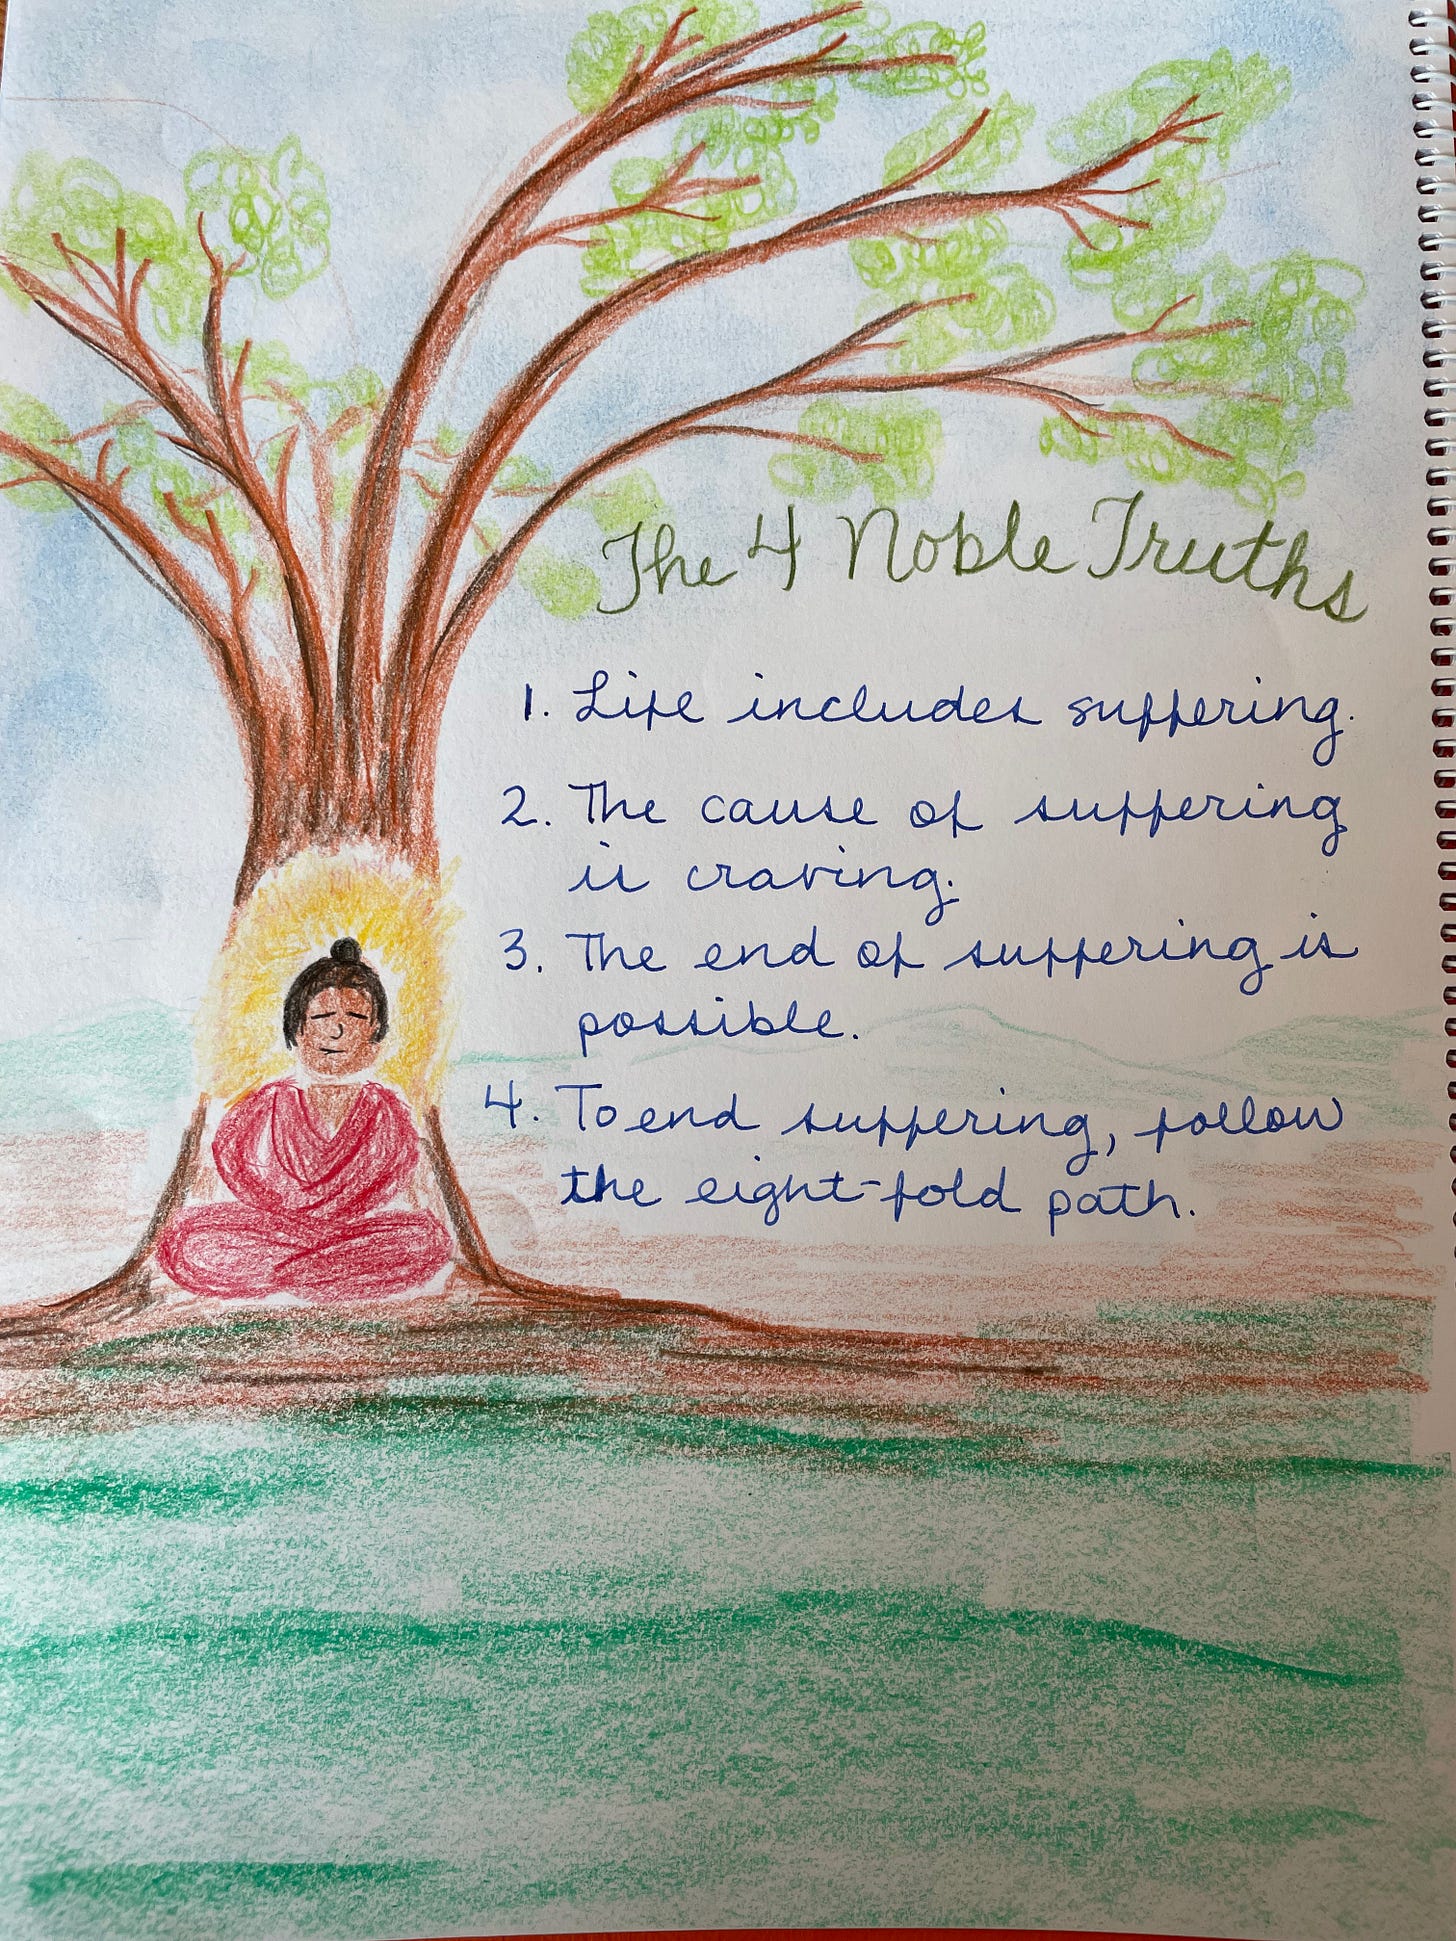 The 4 Noble Truths
1. Life includes suffering.
2. The cause of suffering
is craving.
3. The end of suffering is
possible.
4. To end suffering, follow
the eight-fold path.